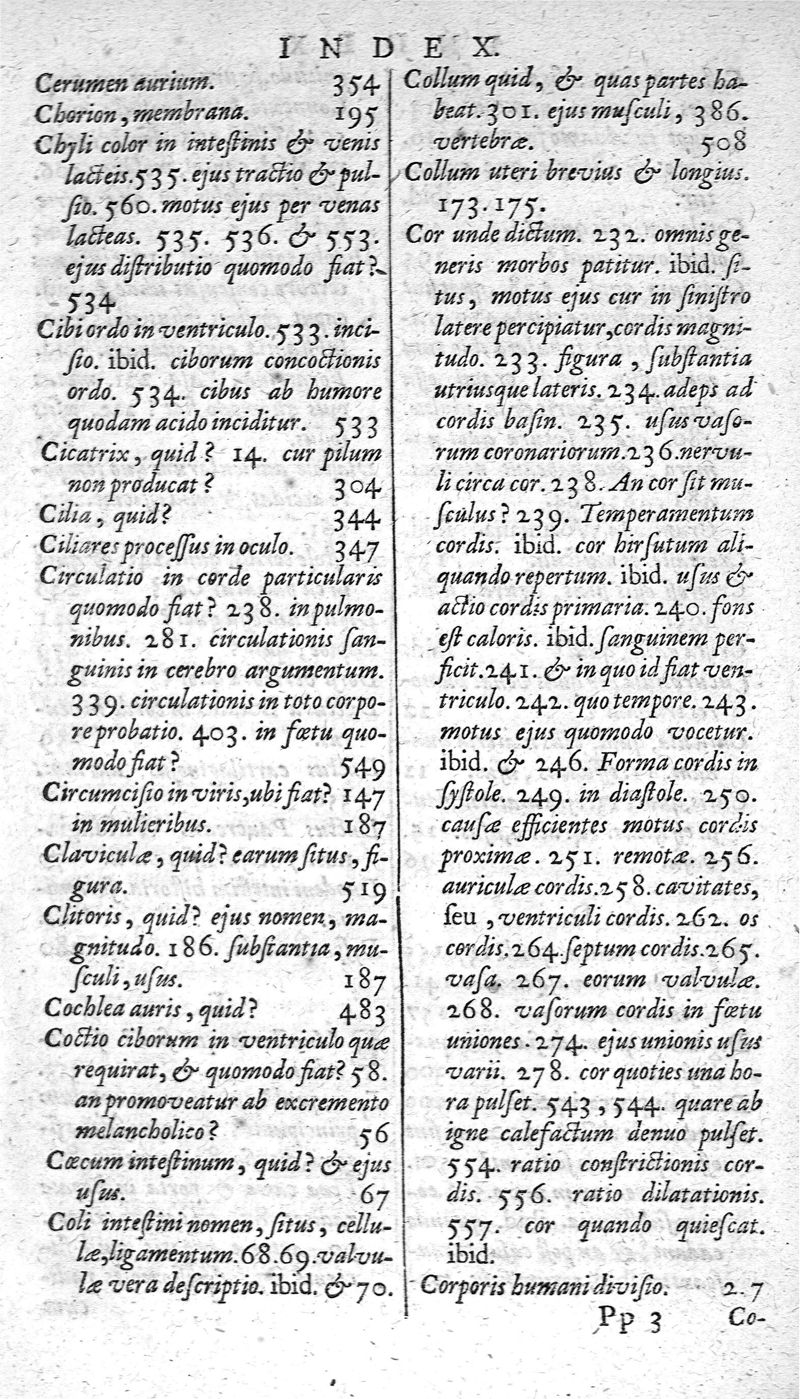 INDEX.
Cerumen aurium. 354
Chorion, membrana. 195
Chyli color in inteſtinis & venis
lacteis. 535. ejus tractio & pul-
ſio. 560. motus ejus per venas
lacteas. 535. 536. & 553.
ejus diſtributio quomodo fiat?
534
Cibi ordo in ventriculo. 533. inci-
ſio. ibid. ciborum concoctionis
ordo. 534. cibus ab humore
quodam acido inciditur. 533
Cicatrix, quid? 14. cur pilum
non producat? 304
Cilia, quid? 344
Ciliares proceſſus in oculo. 347
Circulatio in corde particularis
quomodo fiat? 238. in pulmo-
nibus. 281. circulationis ſan-
guinis in cerebro argumentum.
339. circulationis in toto corpo-
re probatio. 403. in fœtu quo-
modo fiat? 549
Circumciſio in viris, ubi fiat? 147
in mulieribus. 187
Claviculæ, quid? earum ſitus, fi-
gura. 519
Clitoris, quid? ejus nomen, ma-
gnitudo. 186. ſubſtantia, mu-
ſculi, uſus. 187
Cochlea auris, quid? 483
Coctio ciborum in ventriculo quæ
requirat, & quomodo fiat? 58.
an promoveatur ab excremento
melancholico? 56
Cœcum inteſtinum, quid? & ejus
uſus. 67
Coli inteſtini nomen, ſitus, cellu-
læ, ligamentum. 68. 69. valvu-
læ vera deſcriptio. ibid. & 70.
Collum quid, & quas partes ha-
beat. 301. ejus muſculi, 386.
vertebræ. 508
Collum uteri brevius & longius.
173. 175.
Cor unde dictum. 232. omnis ge-
neris morbos patitur. ibid. ſi-
tus, motus ejus cur in ſiniſtro
latere percipiatur, cordis magni-
tudo. 233. figura, ſubſtantia
utriusque lateris. 234. adeps ad
cordis baſin. 235. uſus vaſo-
rum coronariorum. 236. nervu-
li circa cor. 238. An cor ſit mu-
ſculus? 239. Temperamentum
cordis. ibid. cor hirſutum ali-
quando repertum. ibid. uſus &
actio cordis primaria. 240. fons
eſt caloris. ibid. ſanguinem per-
ficit. 241. & in quo id fiat ven-
triculo. 242. quo tempore. 243.
motus ejus quomodo vocetur.
ibid. & 246. Forma cordis in
ſyſtole. 249. in diaſtole. 250.
cauſæ efficientes motus cordis
proximæ. 251. remotæ. 256.
auriculæ cordis. 258. cavitates,
ſeu, ventriculi cordis. 262. os
cordis. 264. ſeptum cordis. 265.
vaſa. 267. eorum valvulæ.
268. vaſorum cordis in fœtu
uniones. 274. ejus unionis uſus
varii. 278. cor quoties una ho-
ra pulſet. 543, 544. quare ab
igne calefactum denuo pulſet.
554. ratio conſtrictionis cor-
dis. 556. ratio dilatationis.
557. cor quando quieſcat.
ibid.
Corporis humani diviſio. 2. 7
Pp 3 Co-